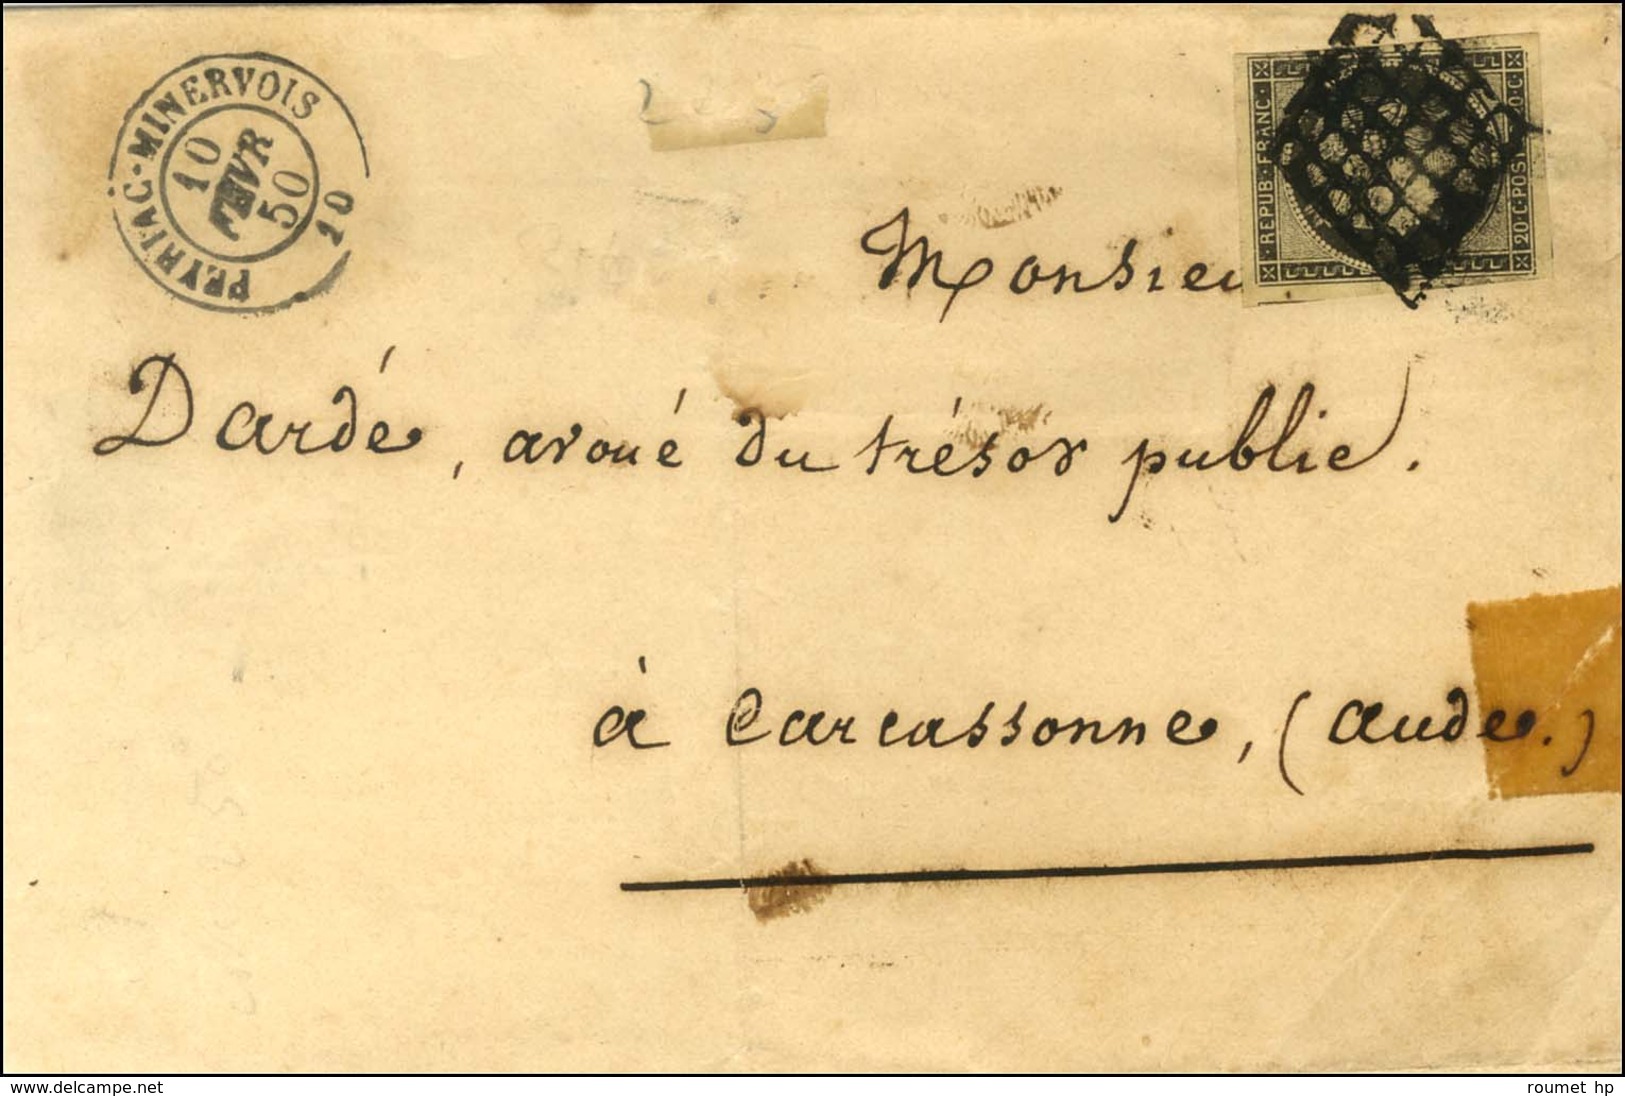 PEYRIAC-MINERVOIS
10
FEVR
50
10
REPUB·FRANC·
20·C·POST 20·C·
Monsieu
Dardé, avoué du trésor public.
à Carcassonne, (aude.)
www.delcampe.net
roumet hp